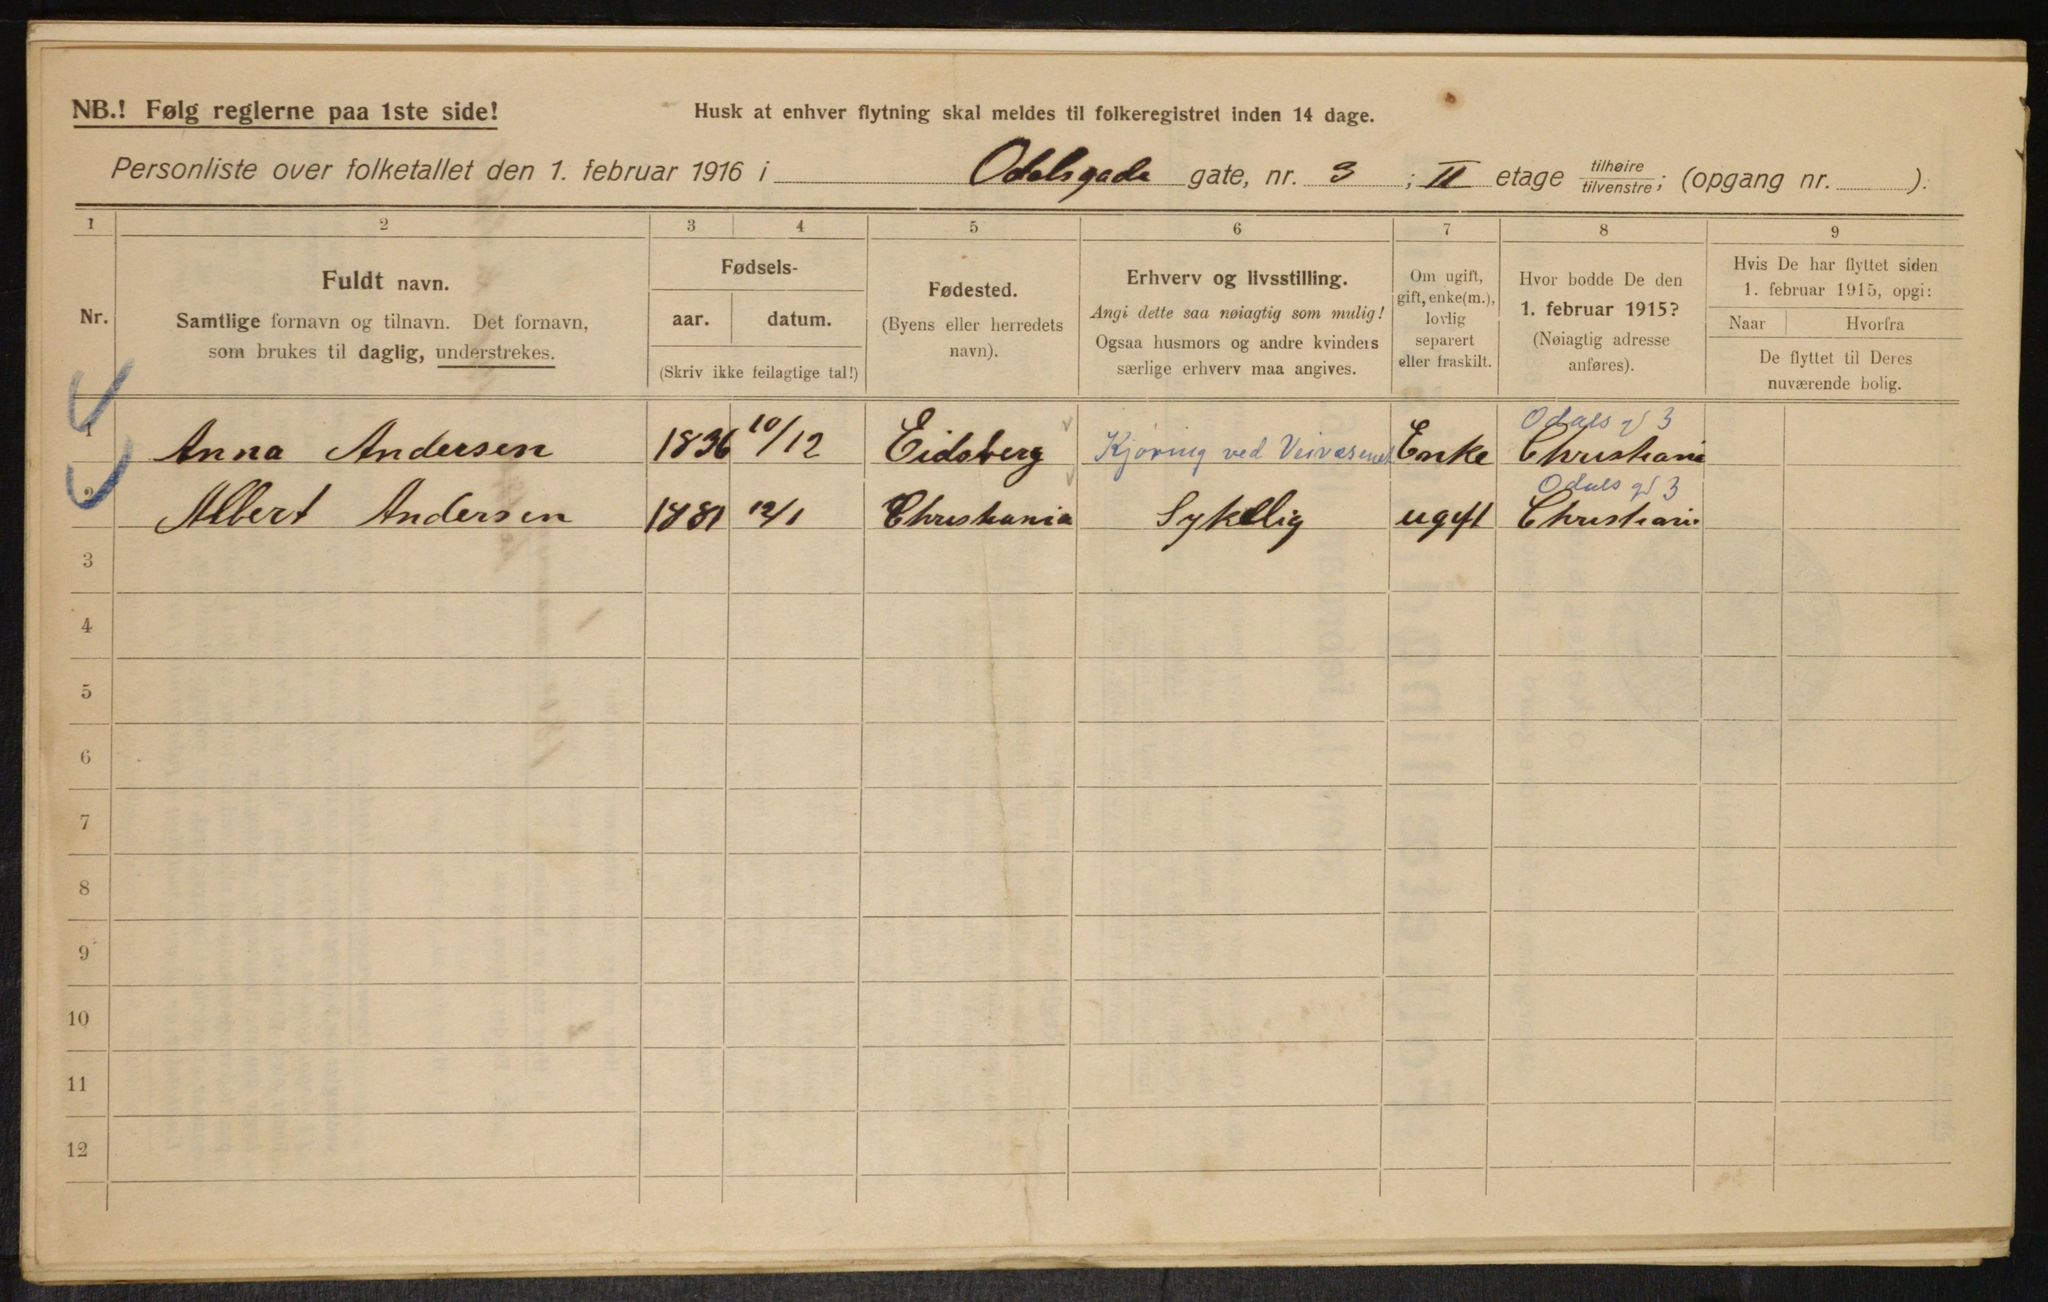 NB.! Følg reglerne paa 1ste side!
Husk at enhver flytning skal meldes til folkeregistret inden 14 dage.
Personliste over folketallet den 1. februar 1916 i Odalsgade gate, nr. 3 ; II etage tilhøire/tilvenstre; (opgang nr. ).
1 2 3 4 5 6 7 8 9
Nr.
Fuldt navn.
Samtlige fornavn og tilnavn. Det fornavn,
som brukes til daglig, understrekes.
Fødsels-
aar. datum.
(Skriv ikke feilagtige tal!)
Fødested.
(Byens eller herredets
navn).
Erhverv og livsstilling.
Angi dette saa nøiagtig som mulig!
Ogsaa husmors og andre kvinders
særlige erhverv maa angives.
Om ugift,
gift, enke(m.),
lovlig
separert
eller fraskilt.
Hvor bodde De den
1. februar 1915?
(Nøiagtig adresse
anføres).
Hvis De har flyttet siden
1. februar 1915, opgi:
Naar Hvorfra
De flyttet til Deres
nuværende bolig.
Odals gd 3
1 Anna Andersen 1836 10/12 Eidsberg Kjøring ved Veivæsenet Enke Christiania
Odals gd 3
2 Albert Andersen 1881 12/1 Christiania Sykelig ugift Christiania
3
4
5
6
7
8
9
10
11
12